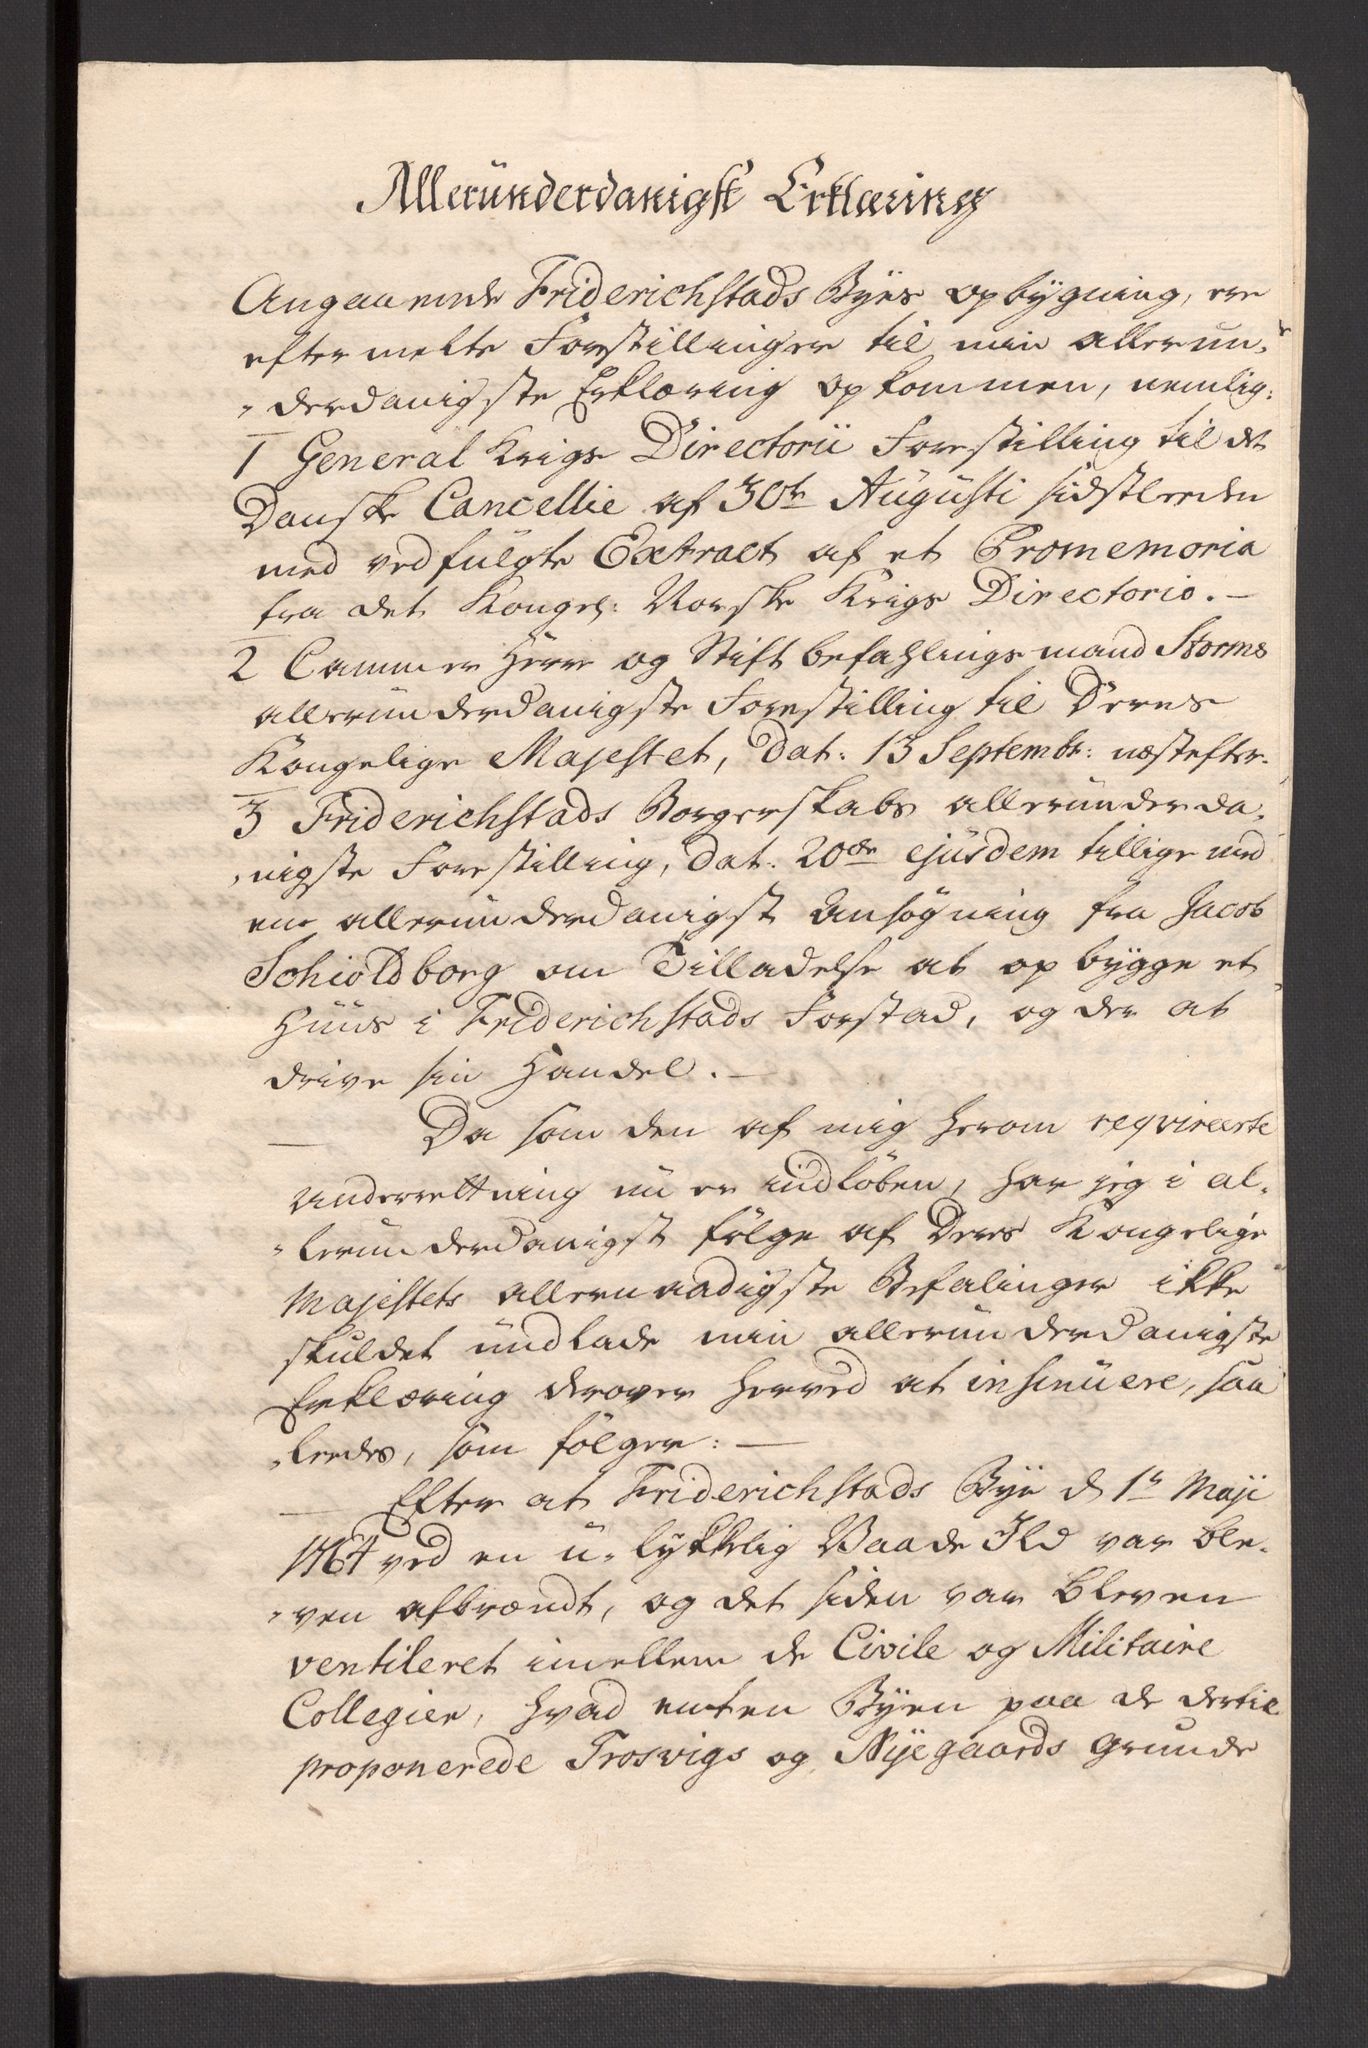 Alleründerdanigst Erklæring
Angaaende Friderichstads Byes opbygning, ere
eftermelte Forstillinger til min allerun„
„derdanigste Erklæring opkommen, nemlig:
1 General Krigs Directorii Forestilling til det
Danske Cancellie af 30te Augusti sidstleeden
med vedfulgte Extract af et Promemoria
fra det Kongel: Norske Krigs Directorio. —
2 Cammer Herre og Stiftbefahlingsmand Storms
alleründerdanigste Forestilling til Deres
Kongelige Majestet, dat: 13 Septembr: næstefter.
3 Friderichstads Borgerskabs alleründerda„
„nigste Forestilling, dat: 20de ejusdem tillige med
en alleründerdanigst Ansøgning fra Jacob
Schioldborg om Tilladelse at opbygge et
Huus i Friderichstads Forstad, og der at
drive sin Handel. —
Da som den af mig herom reqvireerte
Underrettning nu er indløben, har jeg i al„
„leründerdanigst følge af Deres Kongelige
Majestets allernaadigste Befalinger ikke
skuldet undlade min alleründerdanigste
Erklæring derover herved at insinuere, saa
„leedes, som følger: —
Efter at Friderichstads Bye d 1te Maji
1764 ved en u-lykkelig Vaade Ild var ble„
„ven afbrændt, og det siden var bleven
ventileret imellem de Civile og Militaire
Collegier, hvad enten Byen paa de dertil
proponerede Trosvigs og Nyegaards Grunde